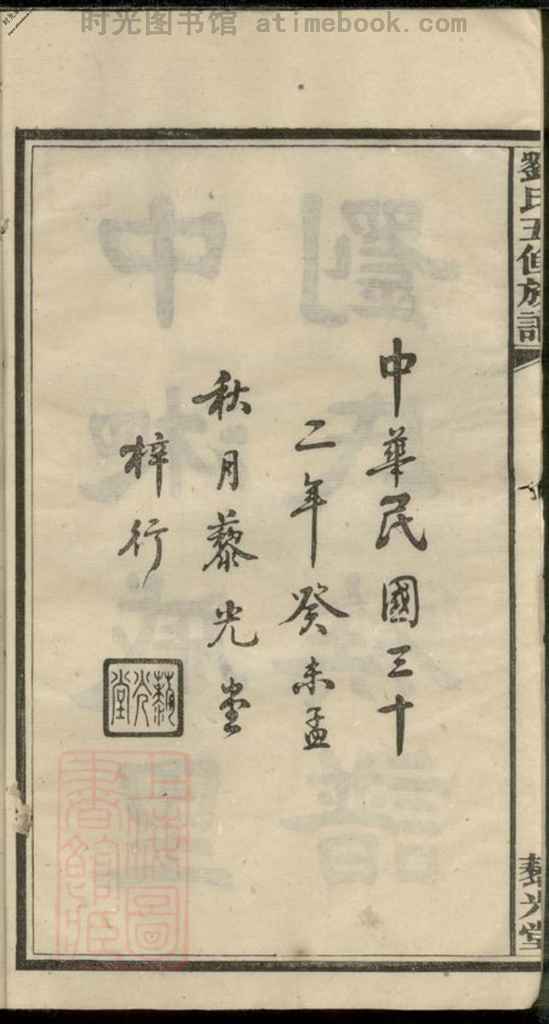 时光图书馆 atimebook.com
劉氏五修族譜
中華民國三十
二年癸未孟
秋月藜光堂
梓行
藜光堂
上海圖
書館藏
藜光堂